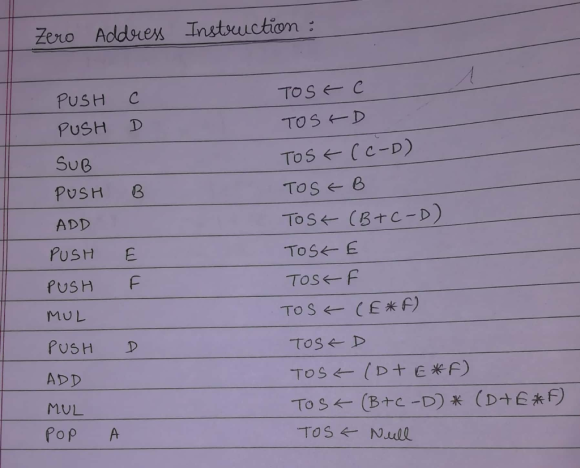 Zero Address Instruction :
PUSH C TOS ← C
PUSH D TOS ← D
SUB TOS ← (C-D)
PUSH B TOS ← B
ADD TOS ← (B+C-D)
PUSH E TOS ← E
PUSH F TOS ← F
MUL TOS ← (E*F)
PUSH D TOS ← D
ADD TOS ← (D+E*F)
MUL TOS ← (B+C-D) * (D+E*F)
POP A TOS ← Null